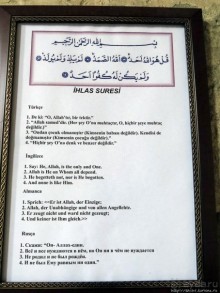 بسم الله الرحمن الرحيم
قل هو الله احد الله الصمد لم يلد ولم يولد
ولم يكن له كفوا احد
İHLAS SURESİ
Türkçe
1. De ki: "O, Allah'tır, bir tektir."
2. "Allah samed'dir. (Her şey O'na muhtaçtır, O, hiçbir şeye muhtaç
değildir.)"
3. "Ondan çocuk olmamıştır (Kimsenin babası değildir). Kendisi de
doğmamıştır (kimsenin çocuğu değildir)."
4. "Hiçbir şey O'na denk ve benzer değildir."
İngilizce
1. Say: He, Allah, is the only and One.
2. Allah is He on Whom all depend.
3. He begetteth not, nor is He begotten.
4. And none is like Him.
Almanca
1. Sprich: Er ist Allah, der Einzige;
2. Allah, der Unabhängige und von allen Angeflehte.
3. Er zeugt nicht und ward nicht gezeugt;
4. Und keiner ist Ihm gleich.
Rusça
1. Скажи: "Он- Аллах-един.
2. Всё и все нуждаются в нём, но Он ни в чём не нуждается
3. Не родил и не был рождён.
4. И не был Ему равным ни один."